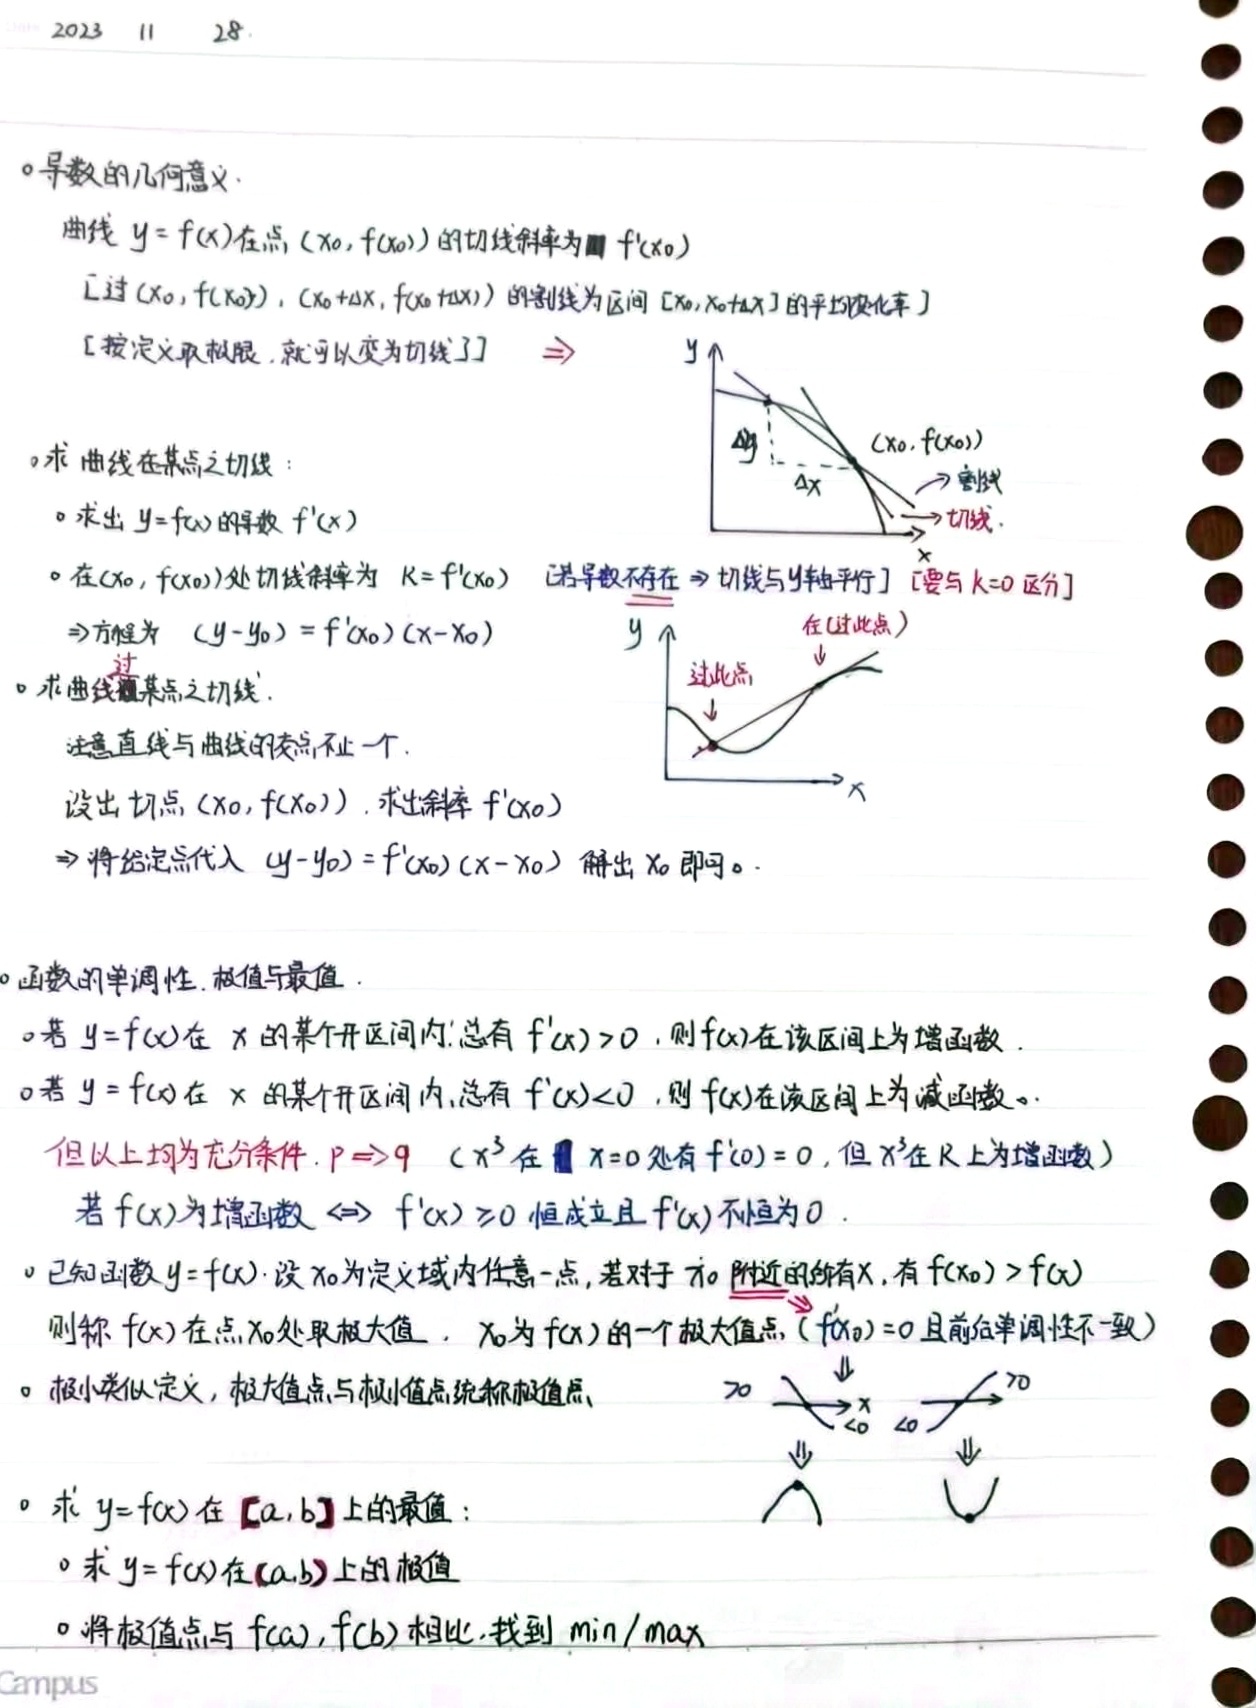 2023 11 28.
导数的几何意义.
曲线 y = f(x) 在点 (x₀, f(x₀)) 的切线斜率为 f'(x₀)
[过 (x₀, f(x₀)), (x₀+Δx, f(x₀+Δx)) 的割线为区间 [x₀, x₀+Δx] 的平均变化率]
[按定义取极限, 就可以变为切线了] ⇒
y
Δy
Δx
(x₀, f(x₀))
→ 割线
→ 切线.
x
求曲线在某点之切线:
求出 y=f(x) 的导数 f'(x)
在(x₀, f(x₀))处切线斜率为 K = f'(x₀) [若导数不存在 ⇒ 切线与y轴平行] [要与 k=0 区分]
⇒方程为 (y-y₀) = f'(x₀)(x-x₀)
y
在(过此点)
过此点
x
求曲线过某点之切线.
注意直线与曲线的交点不止一个.
设出切点 (x₀, f(x₀)). 求出斜率 f'(x₀)
⇒ 将给定点代入 (y-y₀) = f'(x₀)(x-x₀) 解出 x₀ 即可。.
函数的单调性. 极值与最值.
若 y=f(x) 在 x 的某个开区间内, 总有 f'(x)>0, 则f(x)在该区间上为增函数.
若 y=f(x) 在 x 的某个开区间内, 总有 f'(x)<0, 则 f(x)在该区间上为减函数。.
但以上均为充分条件. p ⇒ q (x³ 在 x=0 处有 f'(0) = 0, 但 x³ 在 R 上为增函数)
若 f(x) 为增函数 ⇔ f'(x) ≥0 恒成立且 f'(x) 不恒为0.
已知函数 y=f(x). 设 x₀ 为定义域内任意一点, 若对于 x₀ 附近的所有x, 有 f(x₀) > f(x)
则称 f(x) 在点 x₀ 处取极大值. x₀ 为 f(x) 的一个极大值点. (f'(x₀)=0 且前后单调性不一致)
极小类似定义, 极大值点与极小值点统称极值点
>0 x <0 <0 >0
求 y=f(x) 在 [a, b] 上的最值:
求 y=f(x) 在 (a.b) 上的极值
将极值点与 f(a), f(b) 相比. 找到 min/max
Campus